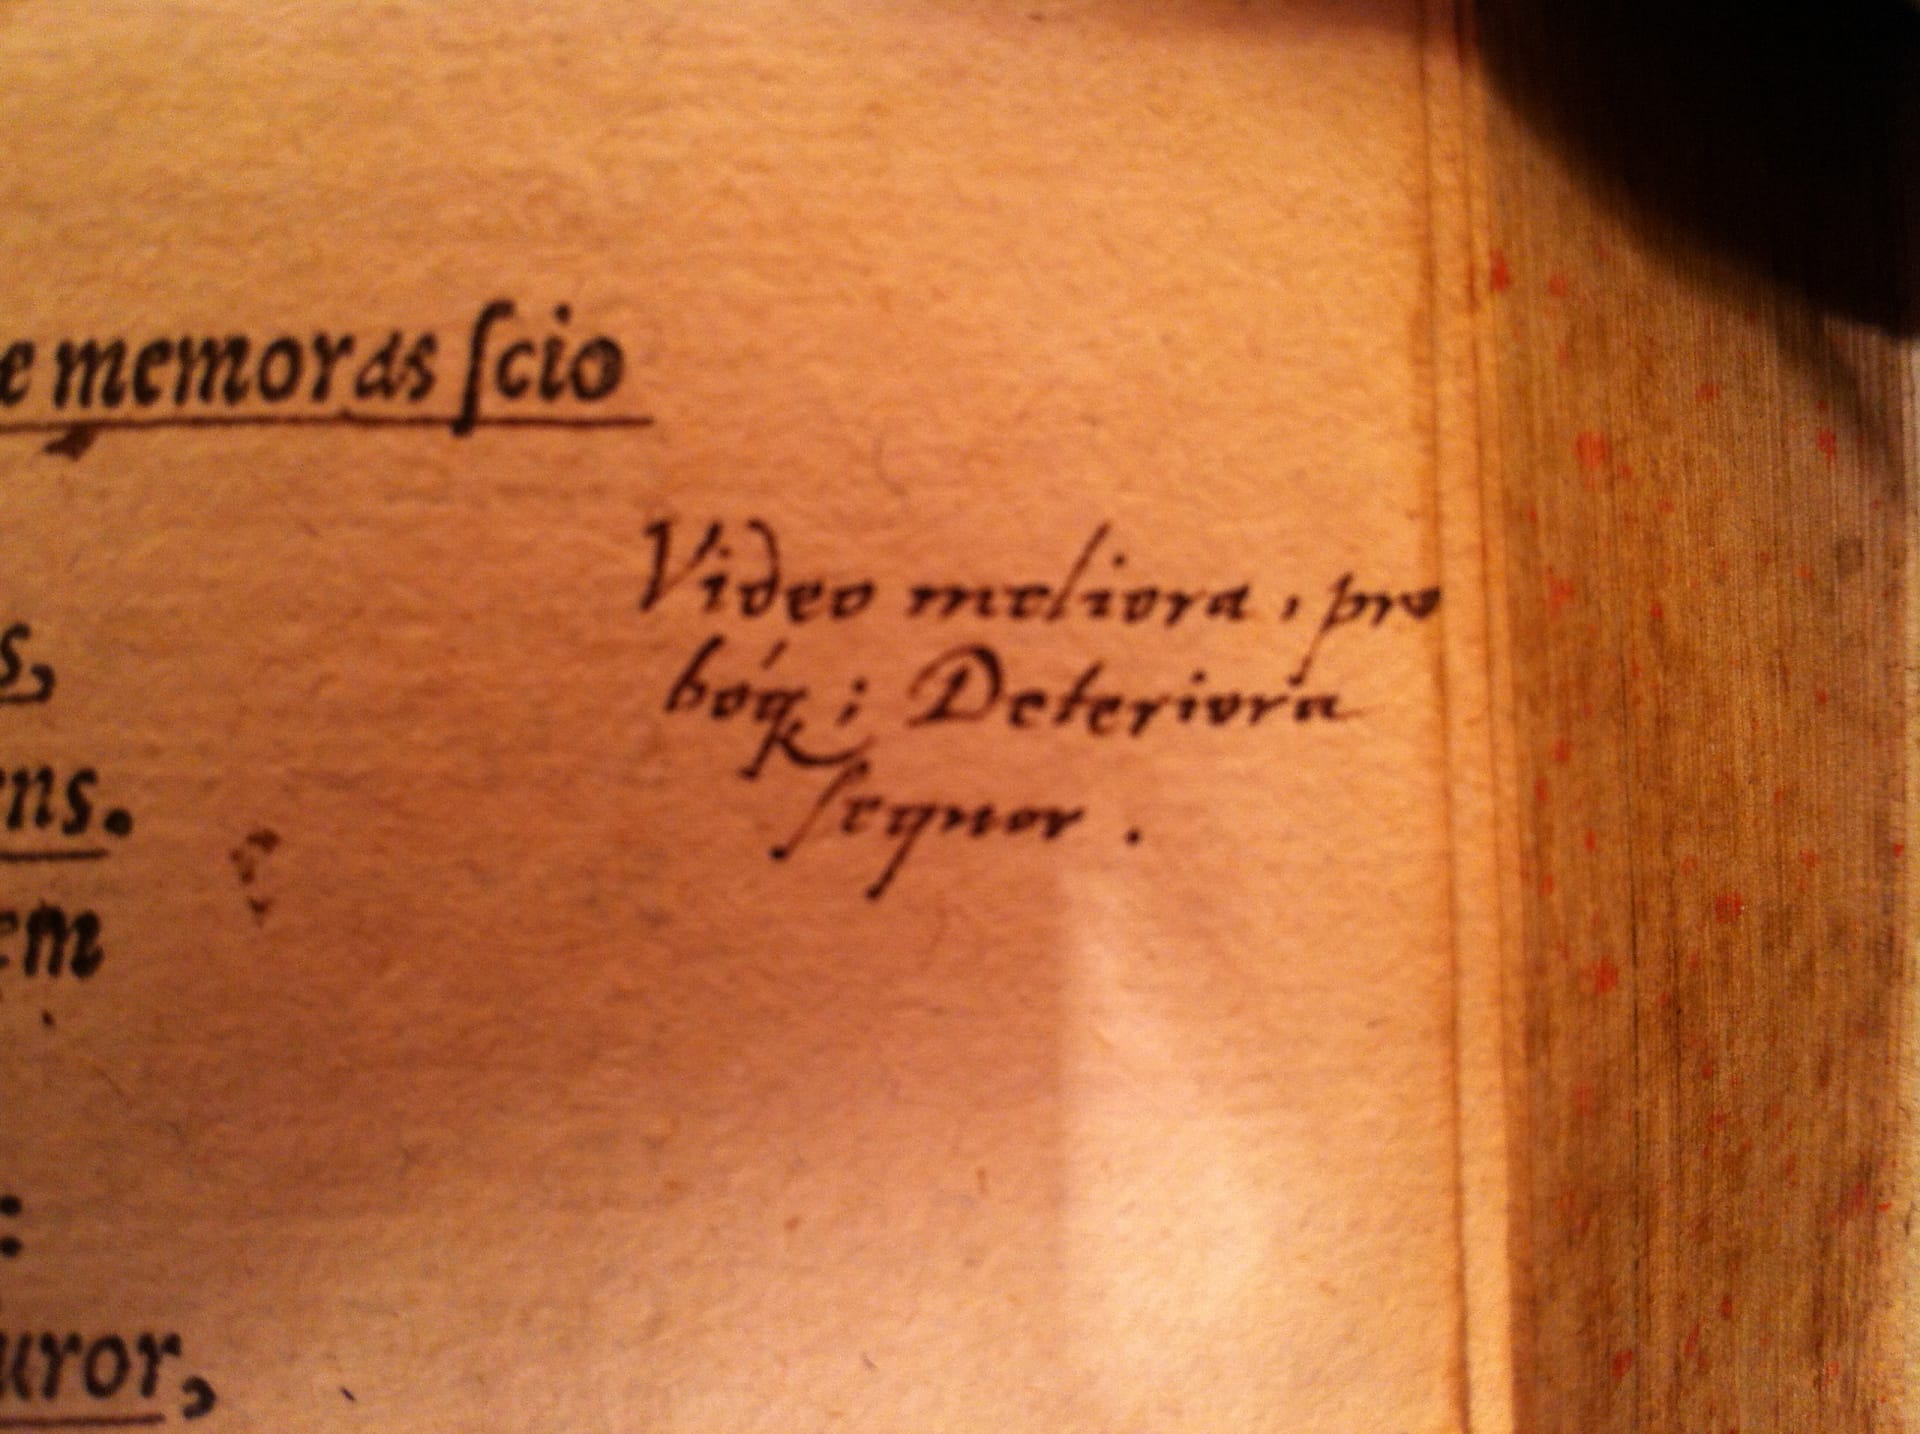 e memoras ſcio
Video meliora, pro
s,
bóq; Deteriora
ens.
ſequor.
em
:
uror,